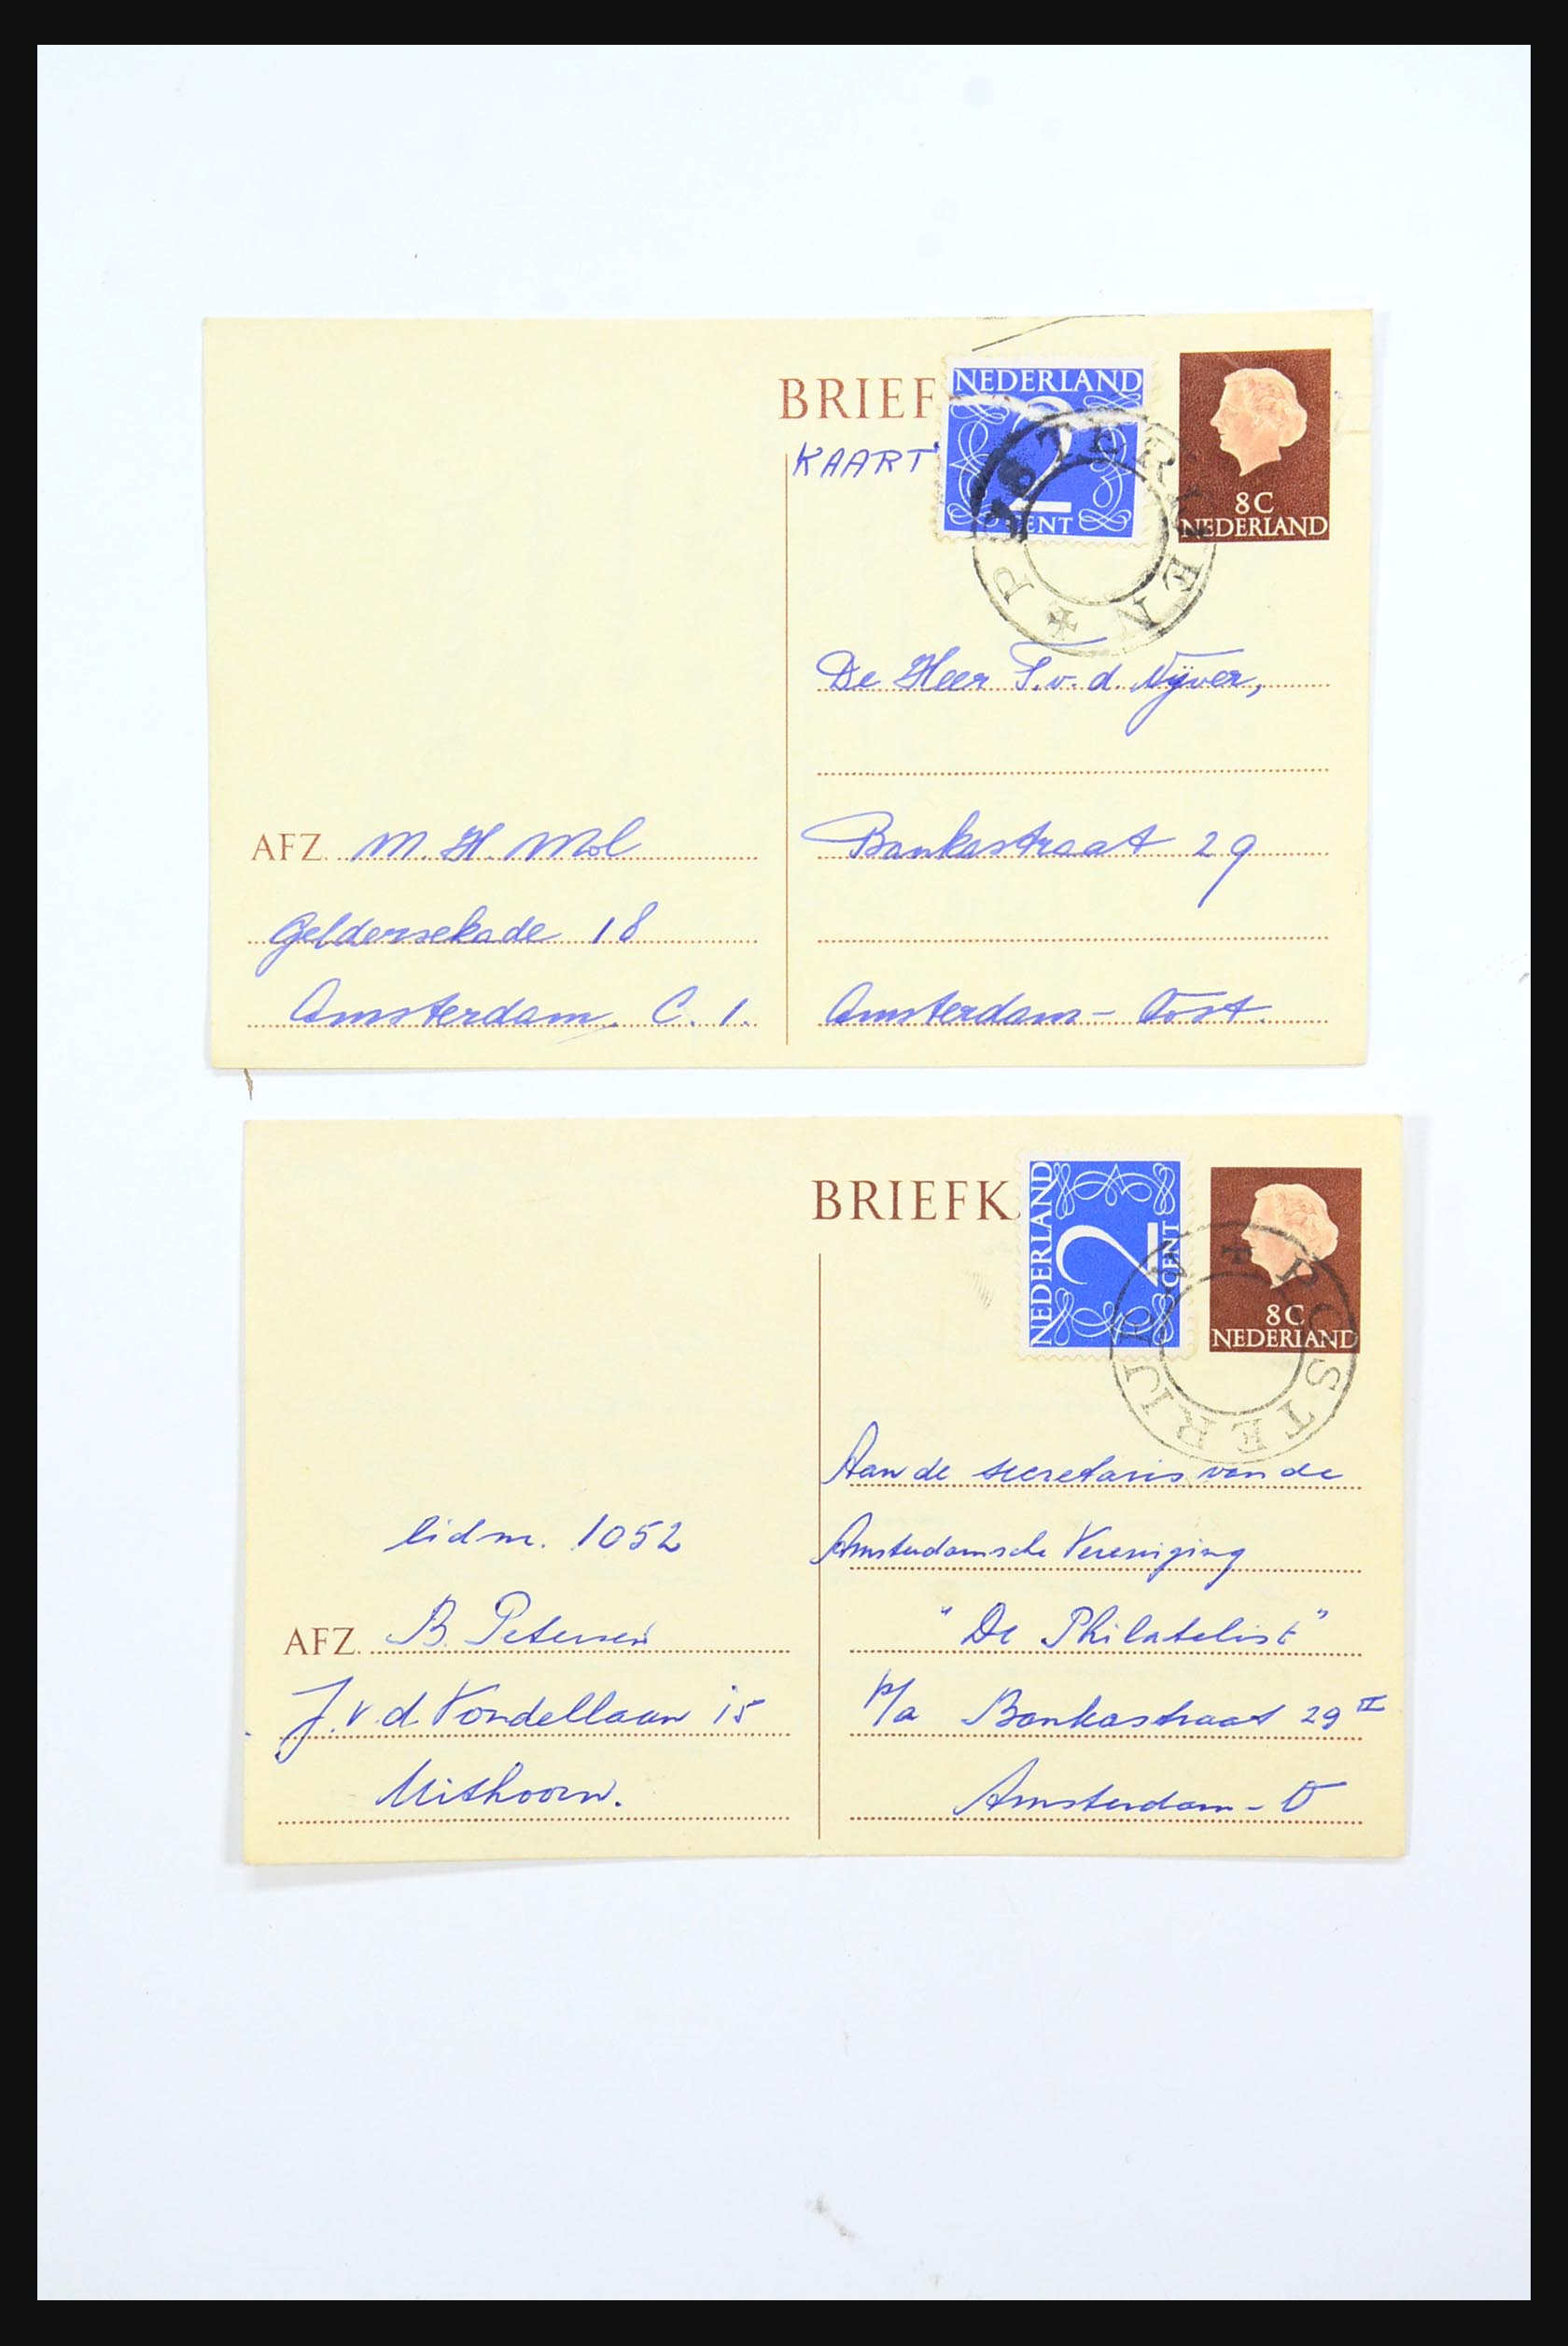 BRIEF
KAART
NEDERLAND
2
CENT
8C
NEDERLAND
POSTERIJEN
De Heer T. v. d. Nÿver,
Bankastraat 29
Amsterdam - Oost.
AFZ. M. H. Mol
Geldersekade 18
Amsterdam. C. 1.
BRIEFK
NEDERLAND
2
CENT
8C
NEDERLAND
POSTERIJEN
Aan de secretaris van de
Amsterdamsche Vereniging
"De Philatelist"
p/a Bankastraat 29 II
Amsterdam - O
lidnr. 1052
AFZ. B. Petersen
J. v. d. Vondellaan 15
Uithoorn.